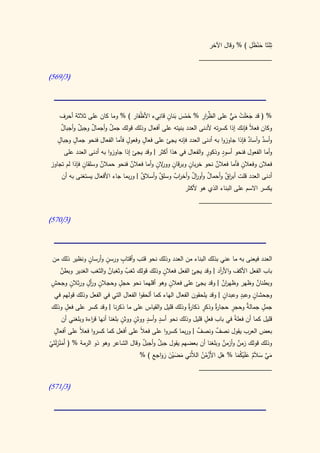 ثِنْتَا حَنْظَل ) % وقال الآخر
__________________
(569/3)
% ( قد جَعلَتْ مَيٌّ على الظِّرارِ % خَمْسَ بَنانٍ قانِيء الأظْفَارِ ) % وما كان على ثلاثة أحرف
وكان فعَلاً فإنك إذا كسرته لأدنى العدد بنيته على أفعال وذلك قولك جملٌ وأجمالٌ وجبلٌ وأجبالٌ
وأسدٌ وأسادٌ فإذا جاوزوا به أدنى العدد فإنه يجئ على فعالٍ وفعولٍ فأما الفعال فنحو جمالٍ وجبالٍ
وأما الفعول فنحو أسودٍ وذكورٍ والفعال في هذا أكثر | وقد يجئ إذا جاوزوا به أدنى العدد على
فعلانٍ وفعلانٍ فأما فعلانٌ نحو خربانٍ وبرقانٍ وورلانٍ وأما فعلانٌ فنحو حملانٌ وسلقانٍ فإذا لم تجاوز
أدنى العدد قلت أبراقٌ وأحمالٌ وأورالٌ وأخرابٌ وسلقٌ وأسلاقٌ | وربما جاء الأفعال يستغنى به أن
يكسر الاسم على البناء الذي هو لأكثر
__________________
(570/3)
العدد فيعنى به ما عني بذلك البناء من العدد وذلك نحو قتب وأقتابٍ ورسن وأرسانٍ ونظير ذلك من
باب الفعل الأكف والأرآد | وقد يجئ الفعل فعلانٍ وذلك قولك ثعبٌ وثغبانٌ والثغب الغدير وبطنٌ
وبطنانٌ وظهر وظهرانٌ | وقد يجئ على فعلانٍ وهو أقلهما نحو حجلٍ وحجلانٍ ورألٍ ورئلانٍ وجحشٍ
وجحشانٍ وعبدٍ وعبدانٍ | وقد يلحقون الفعال الهاء كما ألحقوا الفعال التي في الفعل وذلك قولهم في
جملٍ جمالةٌ وحجرٍ حجارةٌ وذكرٍ ذكارةٌ وذلك قليل والقياس على ما ذكرنا | وقد كسر على فعلٍ وذلك
قليل كما أن فعلةٌ في باب فعلٍ قليل وذلك نحو أسدٍ وأسدٍ ووثنٍ ووثنٍ بلغنا أنها قراءة وبلغني أن
بعض العرب يقول نصفٌ ونصفٌ | وربما كسروا فعلاً على أفعلٍ كما كسروا فعلاً على أفعالٍ
وذلك قولك زمنٌ وأزمنٌ وبلغنا أن بعضهم يقول جبلٌ وأجبلٌ وقال الشاعر وهو ذو الرمة % ( أَمَنْزِلَتَيْ
مَيٍّ سَلامٌ عَلَيْكُما % هَلِ الأَزْمُنُ اللاَّئي مَضَيْنَ رَواجِع ) %
__________________
(571/3)